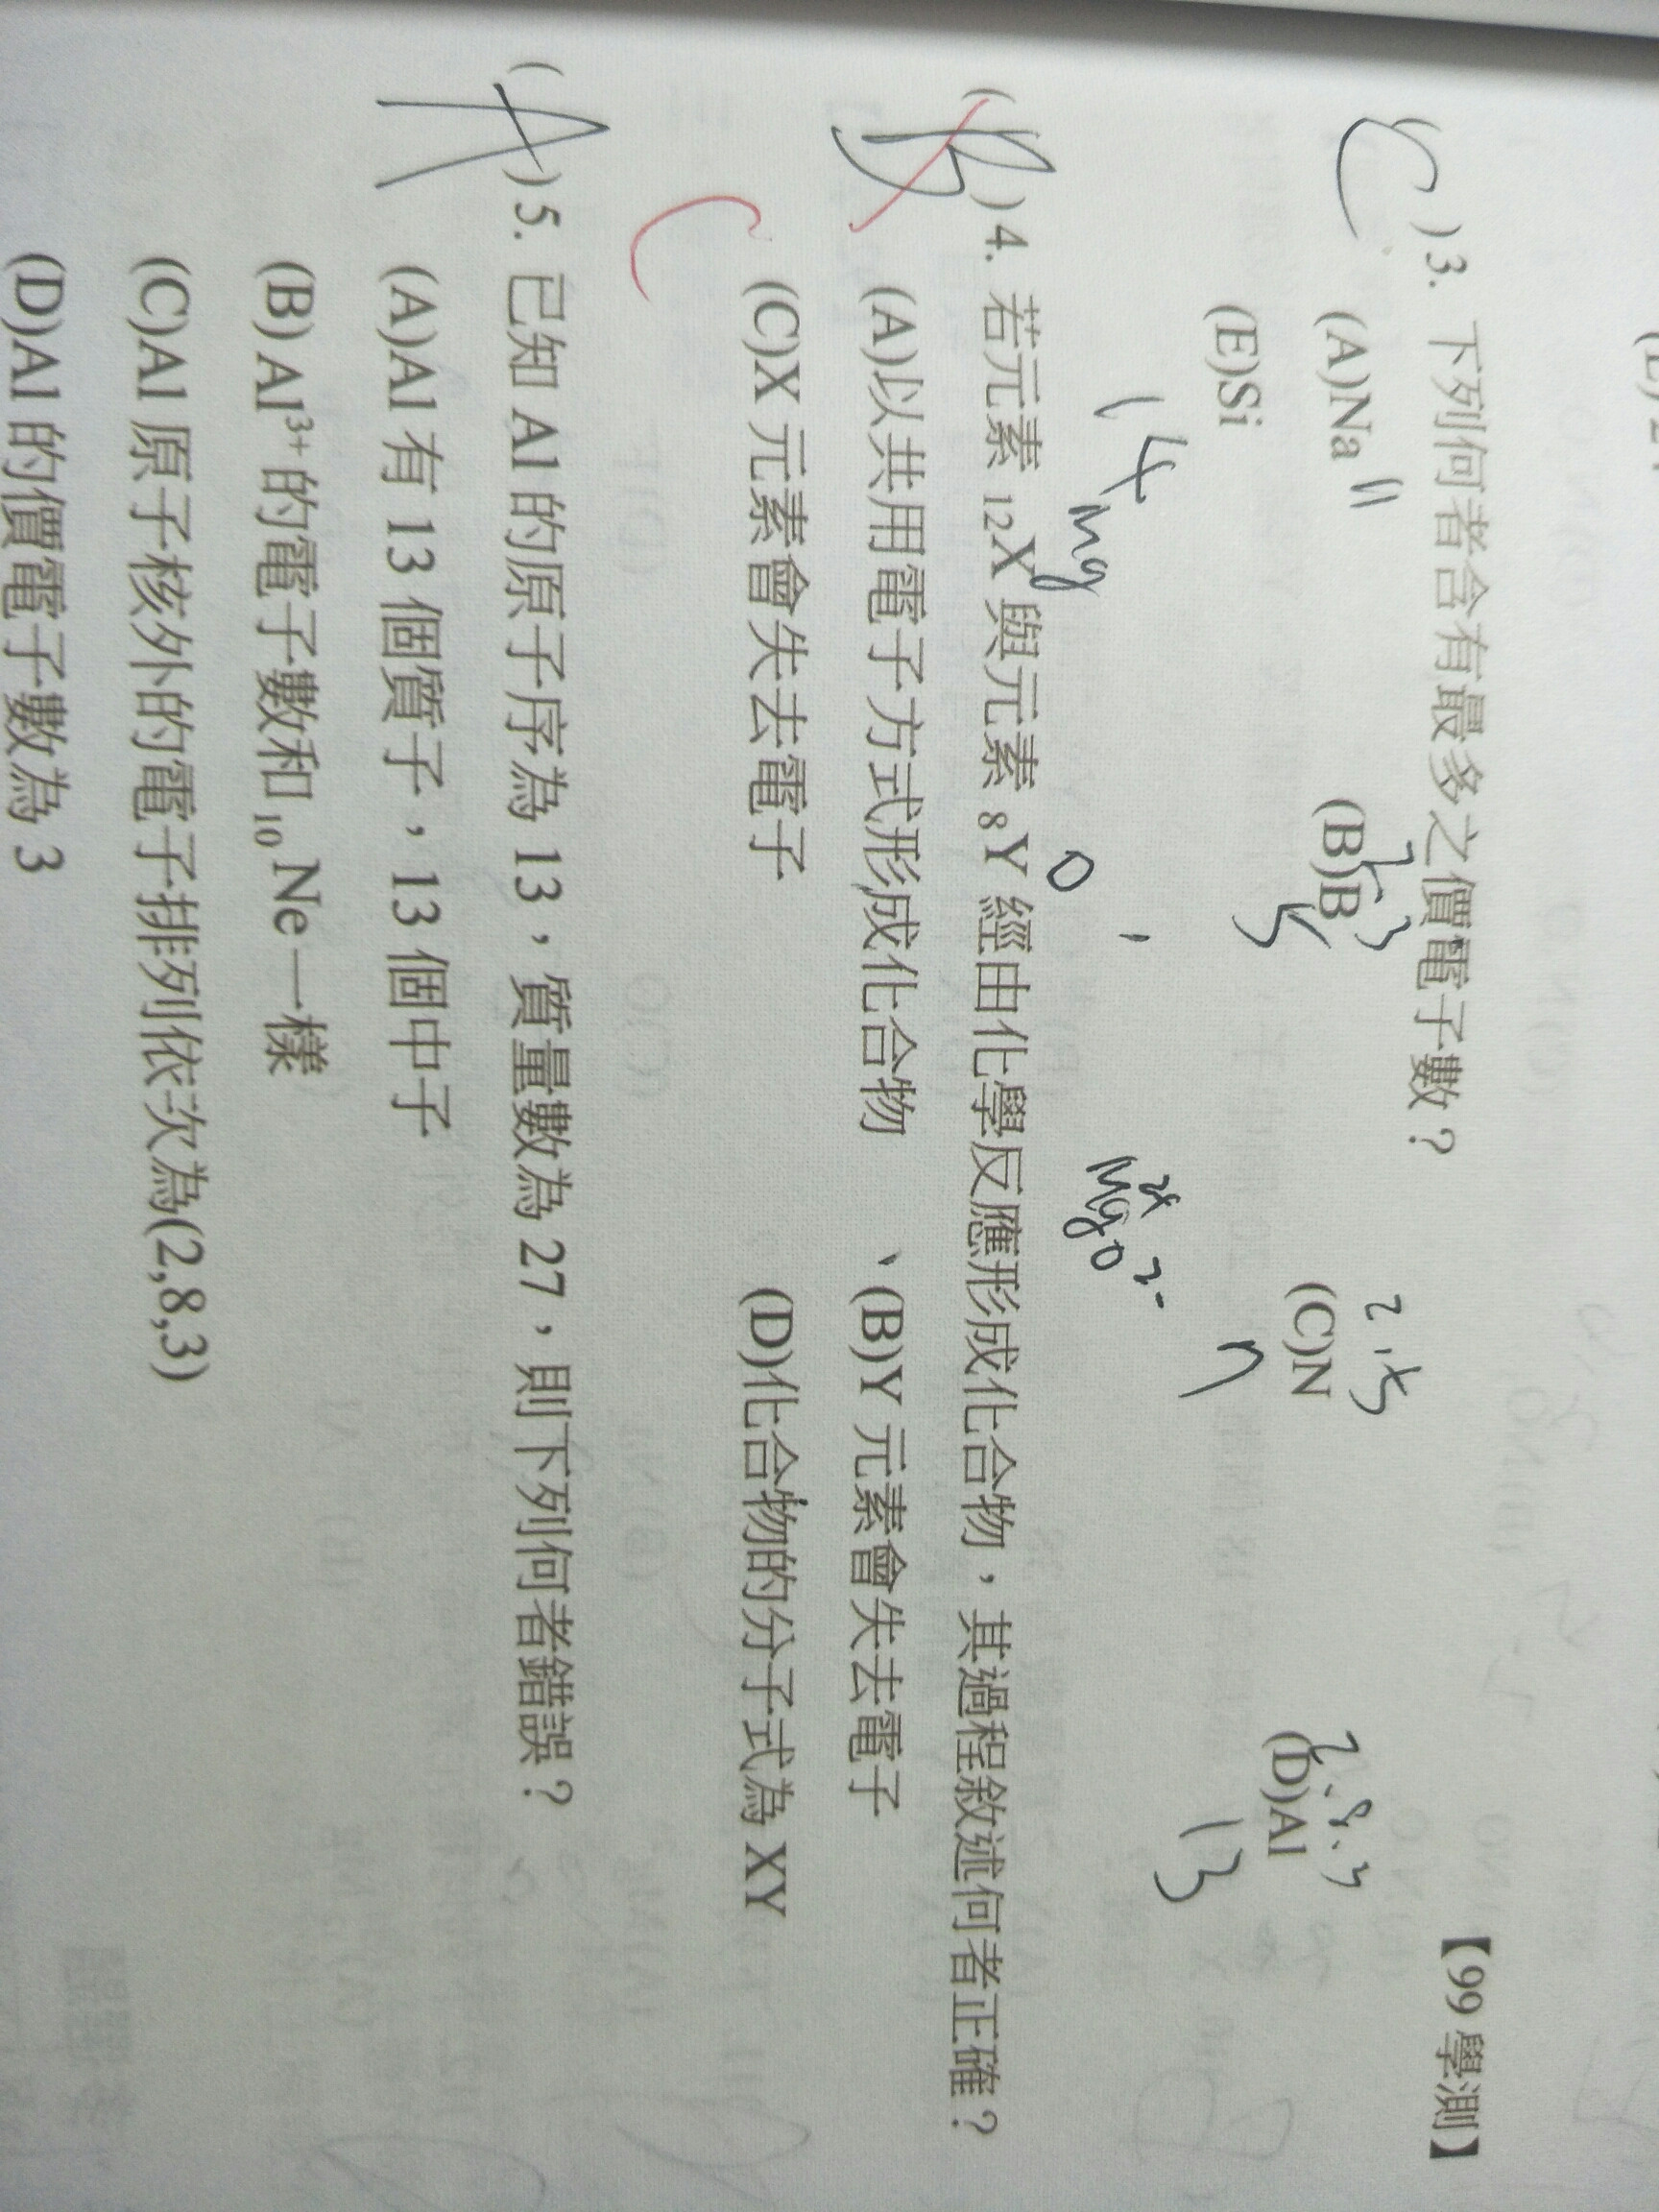 (C)3. 下列何者含有最多之價電子數？【99 學測】
2,3 2,5 2.8.3
(A)Na 11 (B)B (C)N (D)Al
5 7 13
(E)Si
14 Mg O Mg2+O2-
(B)4. 若元素 12X 與元素 8Y 經由化學反應形成化合物，其過程敘述何者正確？
(A)以共用電子方式形成化合物 (B)Y 元素會失去電子
C
(C)X 元素會失去電子 (D)化合物的分子式為 XY
(A)5. 已知 Al 的原子序為 13，質量數為 27，則下列何者錯誤？
(A)Al 有 13 個質子，13 個中子
(B) Al3+ 的電子數和 10Ne 一樣
(C)Al 原子核外的電子排列依次為(2,8,3)
(D)Al 的價電子數為 3